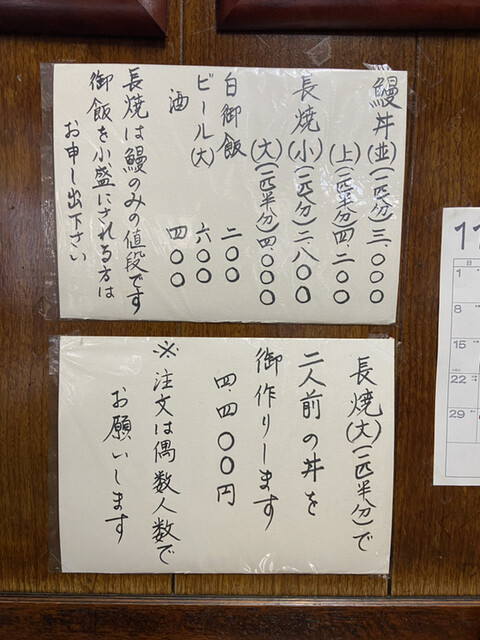 鰻丼(並)(一匹分)三、〇〇〇
(上)(一匹半分)四、二〇〇
長焼(小)(一匹分)二、八〇〇
(大)(一匹半分)四、〇〇〇
白御飯 二〇〇
ビール(大) 六〇〇
酒 四〇〇
長焼は鰻のみの値段です
御飯を小盛にされる方は
お申し出下さい
長焼(大)(一匹半分)で
二人前の丼を
御作りします
四、四〇〇円
※注文は偶数人数で
お願いします
11
日
1
8
15
22
29